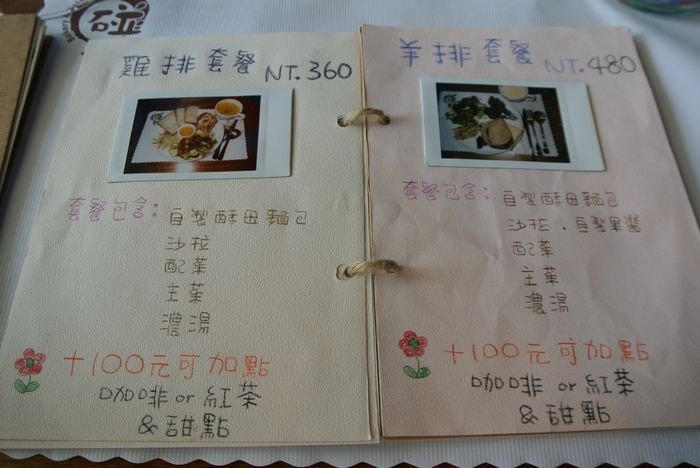 雞排套餐 NT.360
套餐包含：自製酵母麵包
沙拉
配菜
主菜
濃湯
+100元可加點
咖啡 or 紅茶
& 甜點
羊排套餐 NT.480
套餐包含：自製酵母麵包
沙拉．自製果醬
配菜
主菜
濃湯
+100元可加點
咖啡 or 紅茶
& 甜點